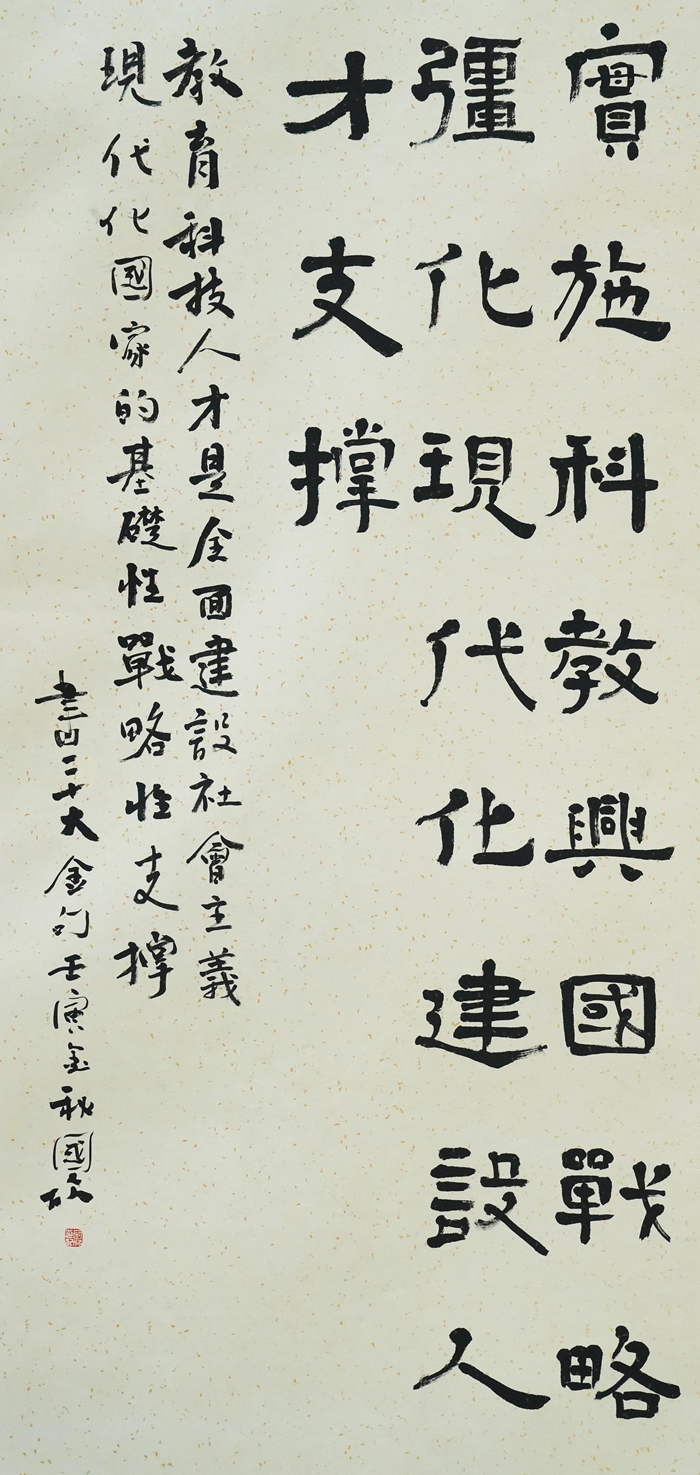 實施科教興國戰略
彊化現代化建設人
才支撐
教育科技人才是全面建設社會主義
現代化國家的基礎性戰略性支撐
書二十大金句壬寅金秋國